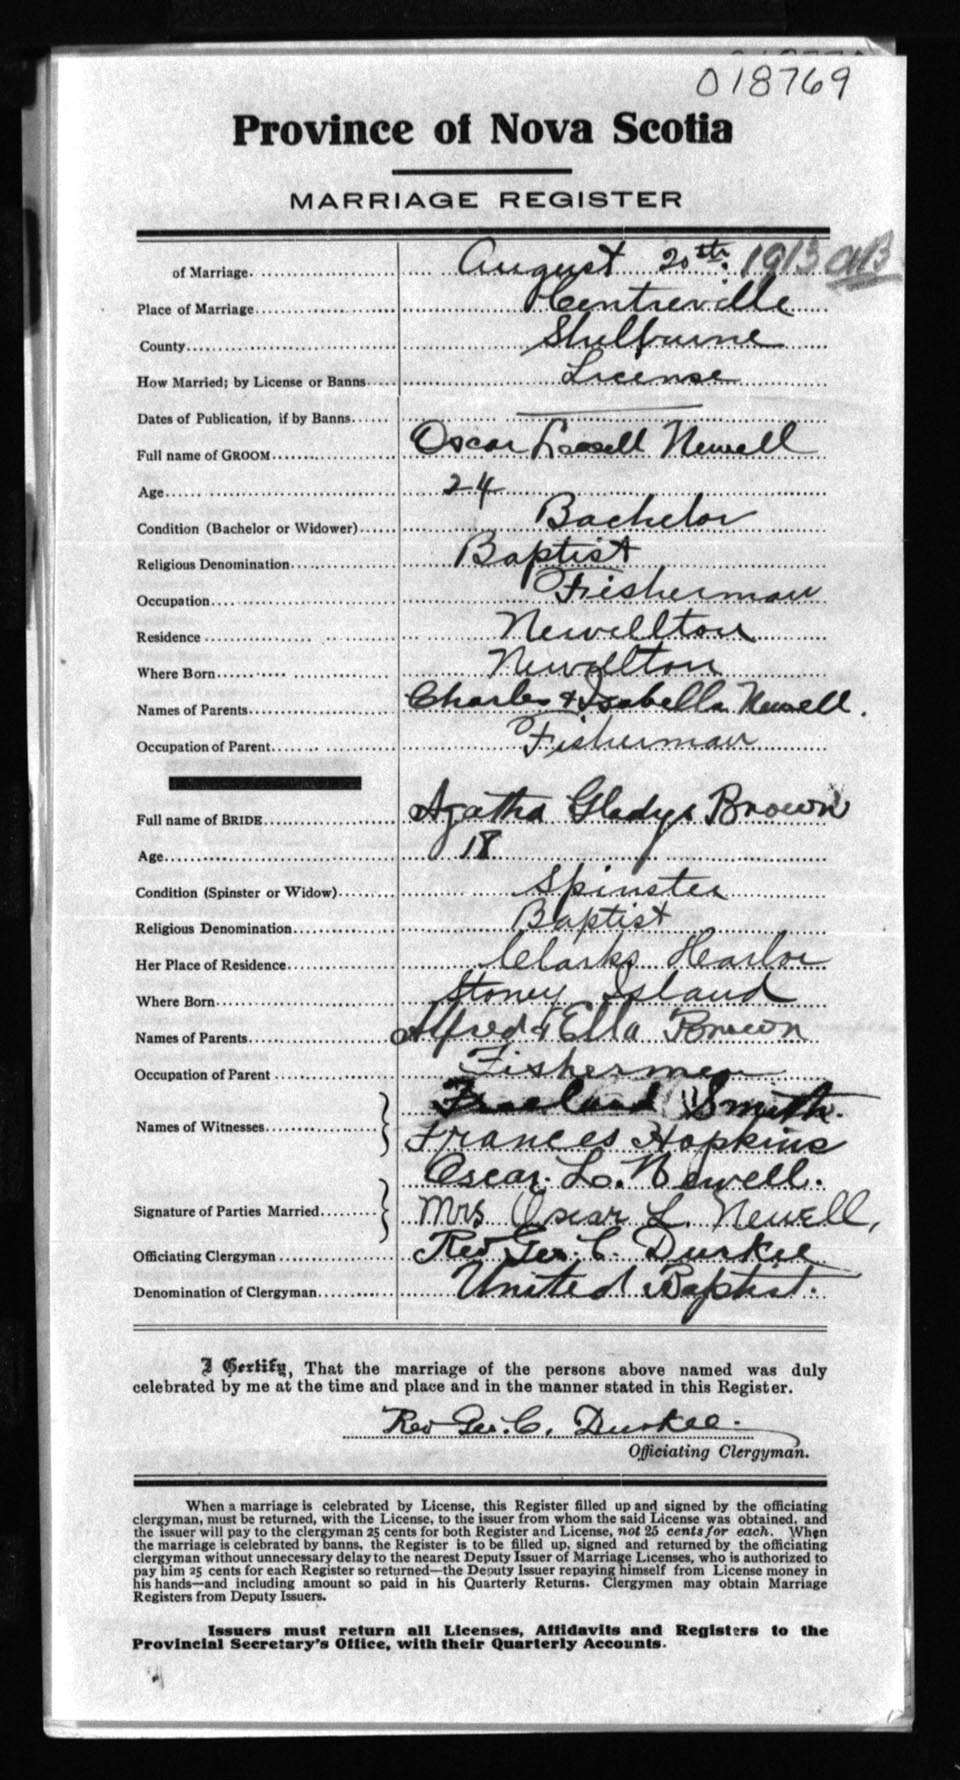 018769
Province of Nova Scotia
MARRIAGE REGISTER
of Marriage August 20th. 1913
Place of Marriage Centreville
County Shelburne
How Married; by License or Banns License
Dates of Publication, if by Banns
Full name of GROOM Oscar Newell
Age 24
Condition (Bachelor or Widower) Bachelor
Religious Denomination Baptist
Occupation Fisherman
Residence Newellton
Where Born Newellton
Names of Parents Charles & Isabella Newell.
Occupation of Parent Fisherman
Full name of BRIDE Agatha Gladys Brown
Age 18
Condition (Spinster or Widow) Spinster
Religious Denomination Baptist
Her Place of Residence Clarks Harbor
Where Born Stoney Island
Names of Parents Alfred & Ella Brown
Occupation of Parent Fisherman
Freeland Smith.
Names of Witnesses Frances Hopkins
Oscar. L. Newell.
Signature of Parties Married Mrs Oscar L. Newell,
Officiating Clergyman Rev Geo. C. Durkee
Denomination of Clergyman United Baptist.
I Certify, That the marriage of the persons above named was duly
celebrated by me at the time and place and in the manner stated in this Register.
Rev Geo. C. Durkee.
Officiating Clergyman.
When a marriage is celebrated by License, this Register filled up and signed by the officiating
clergyman, must be returned, with the License, to the issuer from whom the said License was obtained, and
the issuer will pay to the clergyman 25 cents for both Register and License, not 25 cents for each. When
the marriage is celebrated by banns, the Register is to be filled up, signed and returned by the officiating
clergyman without unnecessary delay to the nearest Deputy Issuer of Marriage Licenses, who is authorized to
pay him 25 cents for each Register so returned—the Deputy Issuer repaying himself from License money in
his hands—and including amount so paid in his Quarterly Returns. Clergymen may obtain Marriage
Registers from Deputy Issuers.
Issuers must return all Licenses, Affidavits and Registers to the
Provincial Secretary's Office, with their Quarterly Accounts.